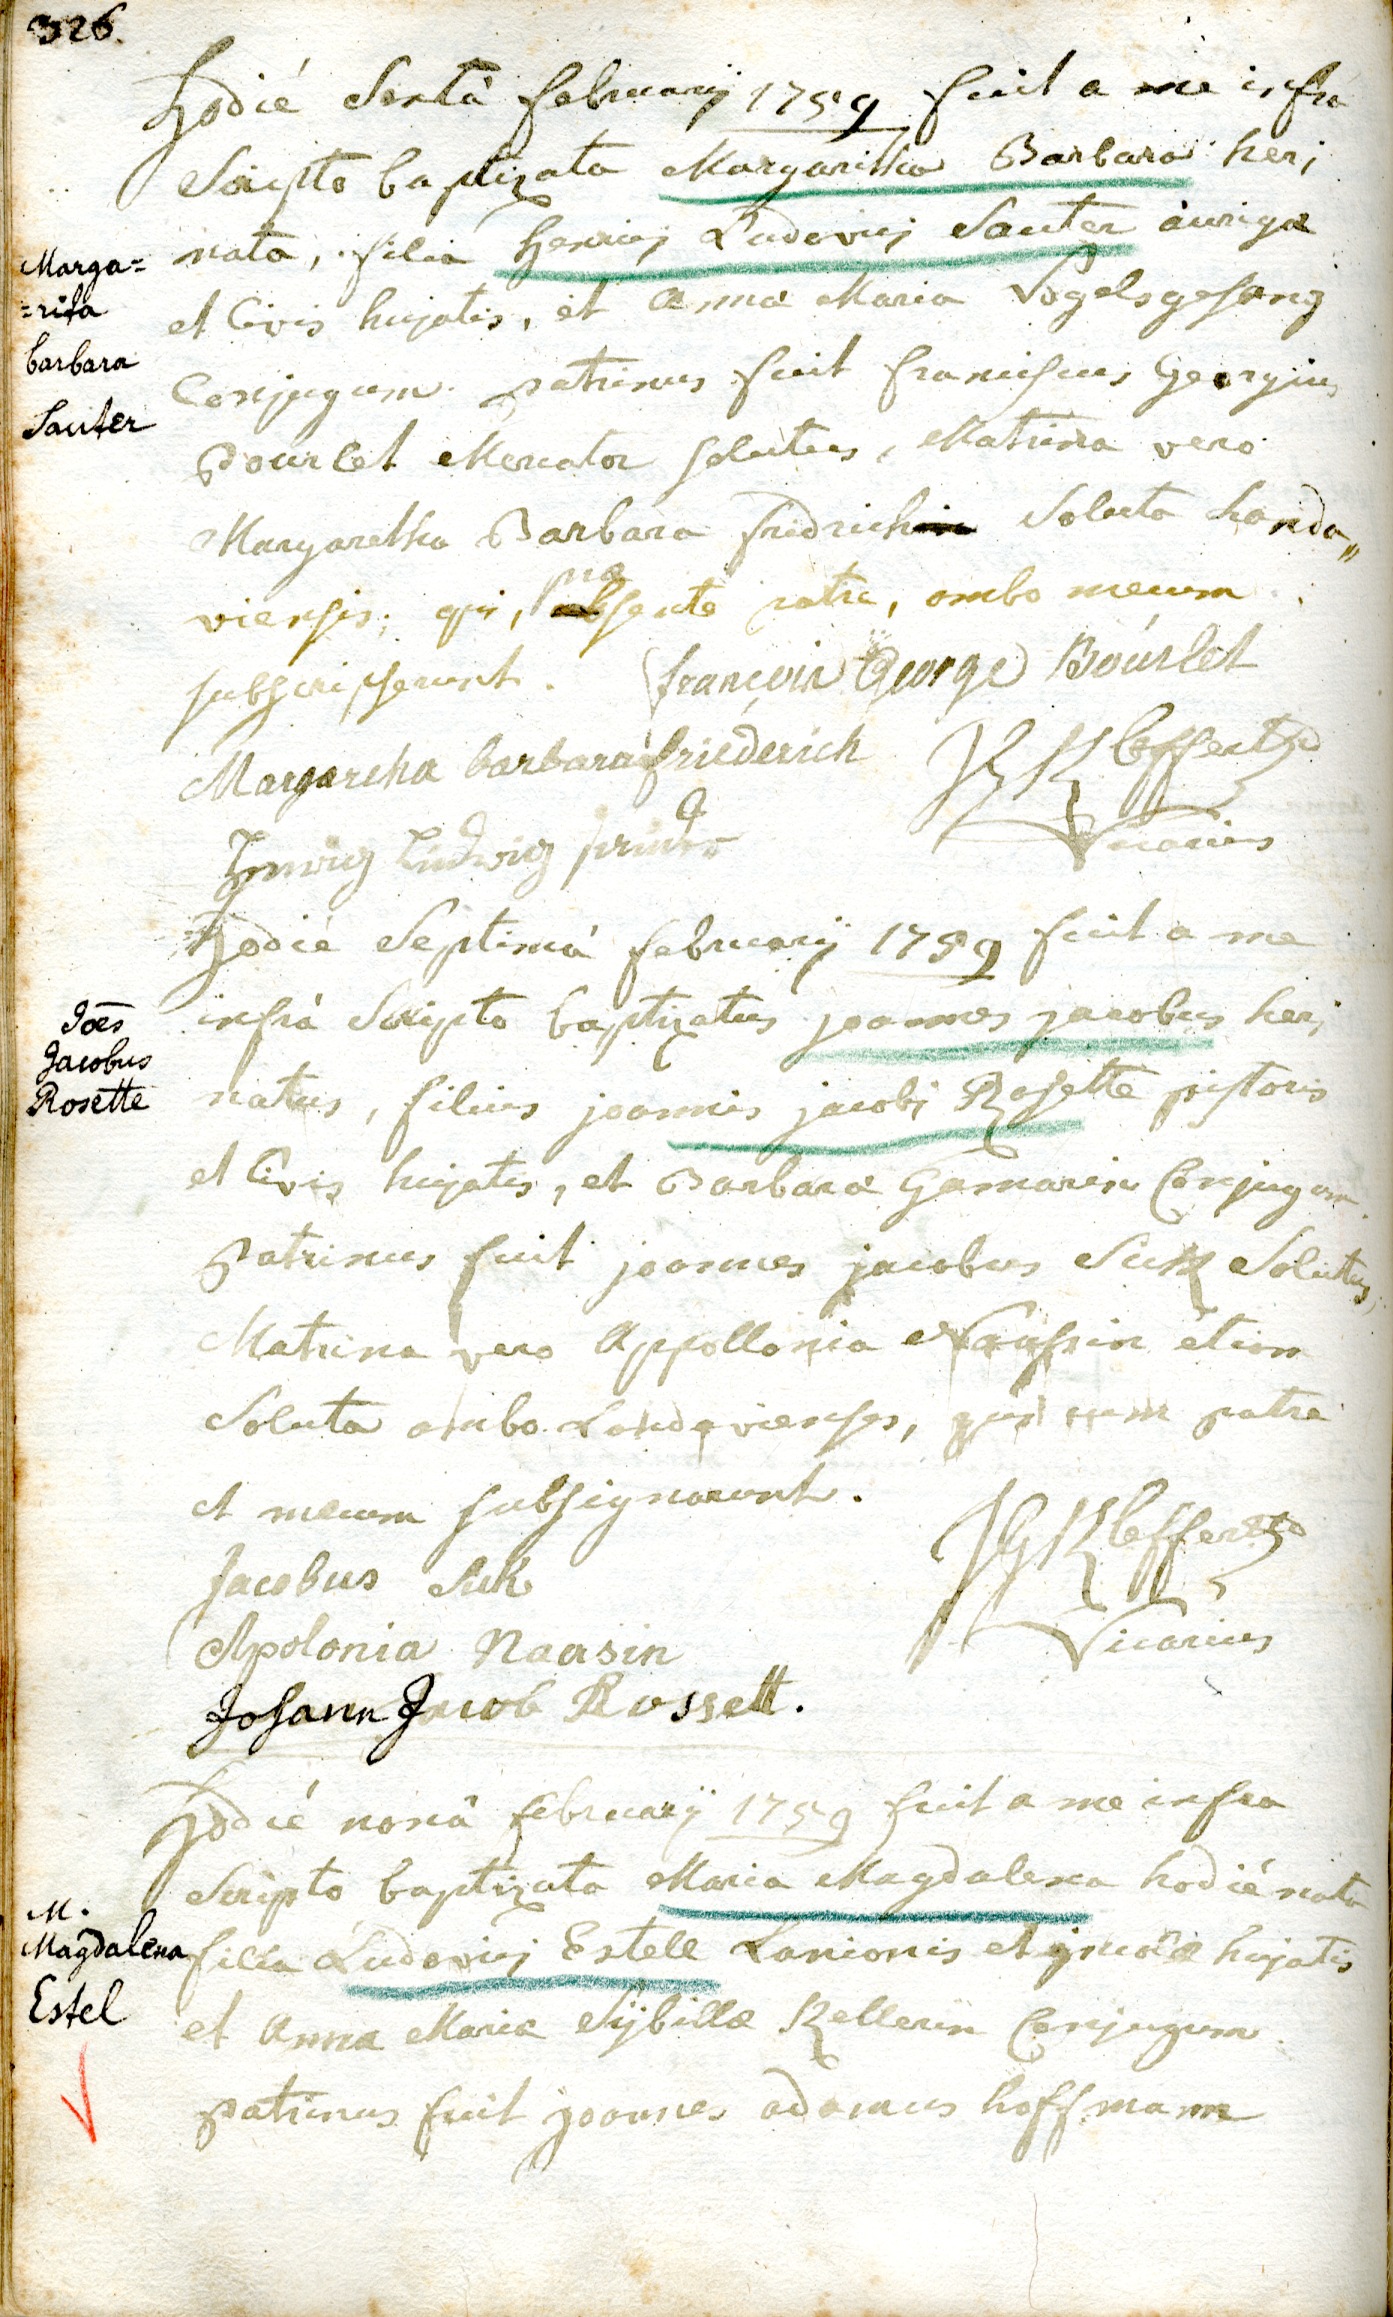 326.
Hodié Sextâ february 1759 fuit a me infra
Scripto baptizata Margaritha Barbara heri
nata, filia henrici Ludovici Sauter aurigæ
et Civis hujatis, et Annæ Maria Vogelsgesang
Conjugum. patrinus fuit franciscus Georgius
Bourlet Mercator solutus, Matrina vero
Margaretha Barbara fridrich Soluta Landa„
viensis; qui, præsente patre, ambo mecum
subscripserunt. françois George Bourlet
Margareha barbara friederich JGKleffertz
Ludwig Vicarius
Marga=
=rita
barbara
Sauter
Hodié Septimâ february 1759 fuit a me
infrà Scripto baptizatus joannes jacobus heri
natus, filius joannis jacobi Rosette pistoris
et Civis hujatis, et Barbaræ Gamarin Conjugum.
Patrinus fuit joannes jacobus Suk Solutus,
Matrina vero Appollonia Naassin etiam
Soluta ambo Landavienses, qui cum patre
et mecum subsignarunt.
Jacobus Suk JGKleffertz
Apolonia Naasin Vicarius
Johann Jacob Rossett.
Joēs
Jacobus
Rosette
Hodié nonâ february 1759 fuit a me infra
Scripto baptizata Maria Magdalena hodié nata
filia Ludovici Estell Lanionis et incolæ hujatis
et Anna Maria Sÿbillæ Kellerin Conjugum.
patrinus fuit joannes adamus hoffmann
M.
Magdalena
Estel